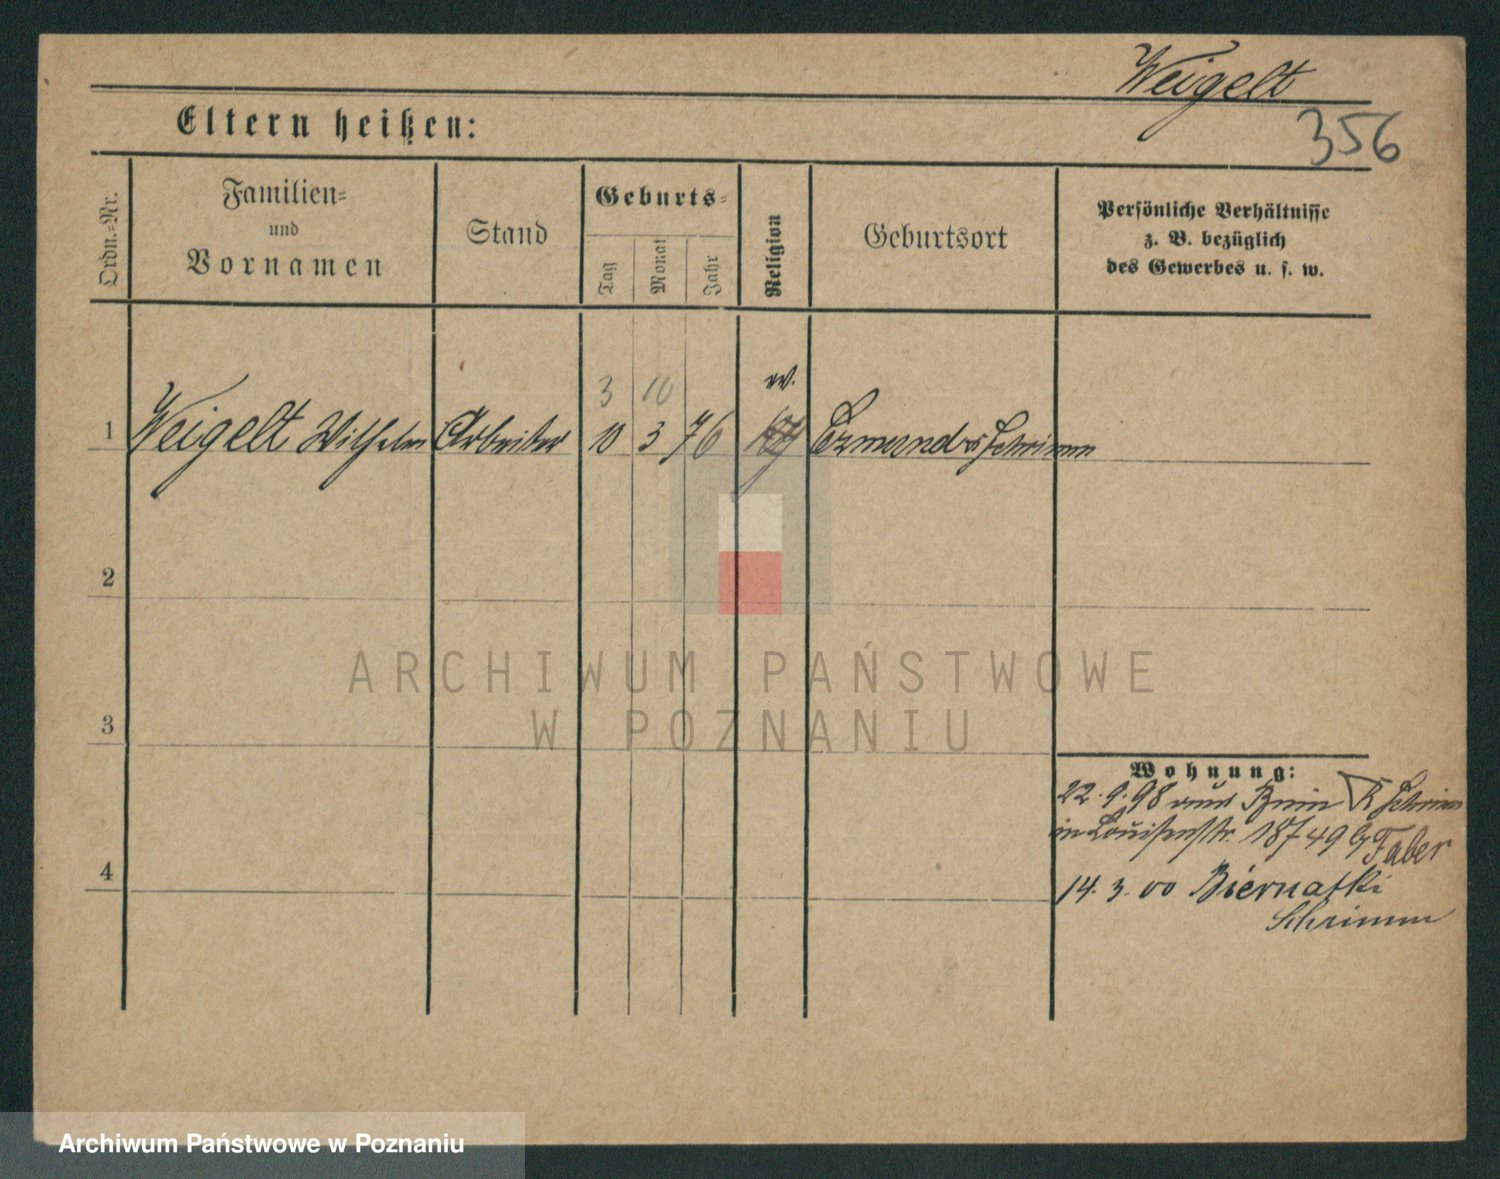 Weigelt
356
Eltern heißen:
Ordn.=Nr.
Familien=
und
Vornamen
Stand
Geburts=
Tag
Monat
Jahr
Religion
Geburtsort
Persönliche Verhältnisse
z. B. bezüglich
des Gewerbes u. s. w.
3 10
1 Weigelt Wilhelm Arbeiter 10 3 76 Schrimm
2
3
4
ARCHIWUM PAŃSTWOWE
W POZNANIU
Wohnung:
22.9.98 Bnin Schrimm
in Louisenstr. 18749 Faber
14.3.00 Biernatki
Schrimm
Archiwum Państwowe w Poznaniu